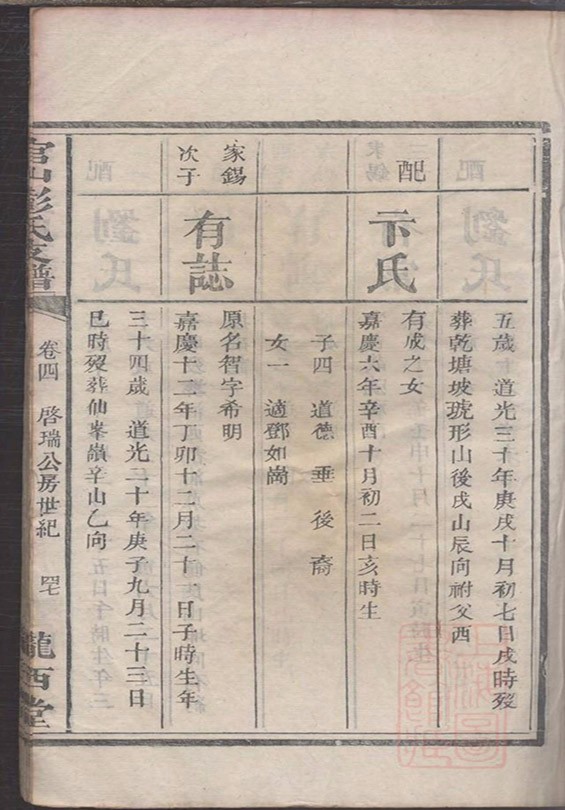 五歲 道光三十年庚戌十月初七日戌時歿
葬乾塘坡琥形山後戌山辰向祔父西
配
卞氏
有成之女
嘉慶六年辛酉十月初二日亥時生
子四 道 德 垂 後 裔
女一 適鄧如崗
家錫
次子
有誌
原名智字希明
嘉慶十二年丁卯十二月二十 日子時生年
三十四歲 道光二十年庚子九月二十三日
巳時歿葬仙峯嶺辛山乙向
官山彭氏支譜
卷四 啓瑞公房世紀
隴西堂